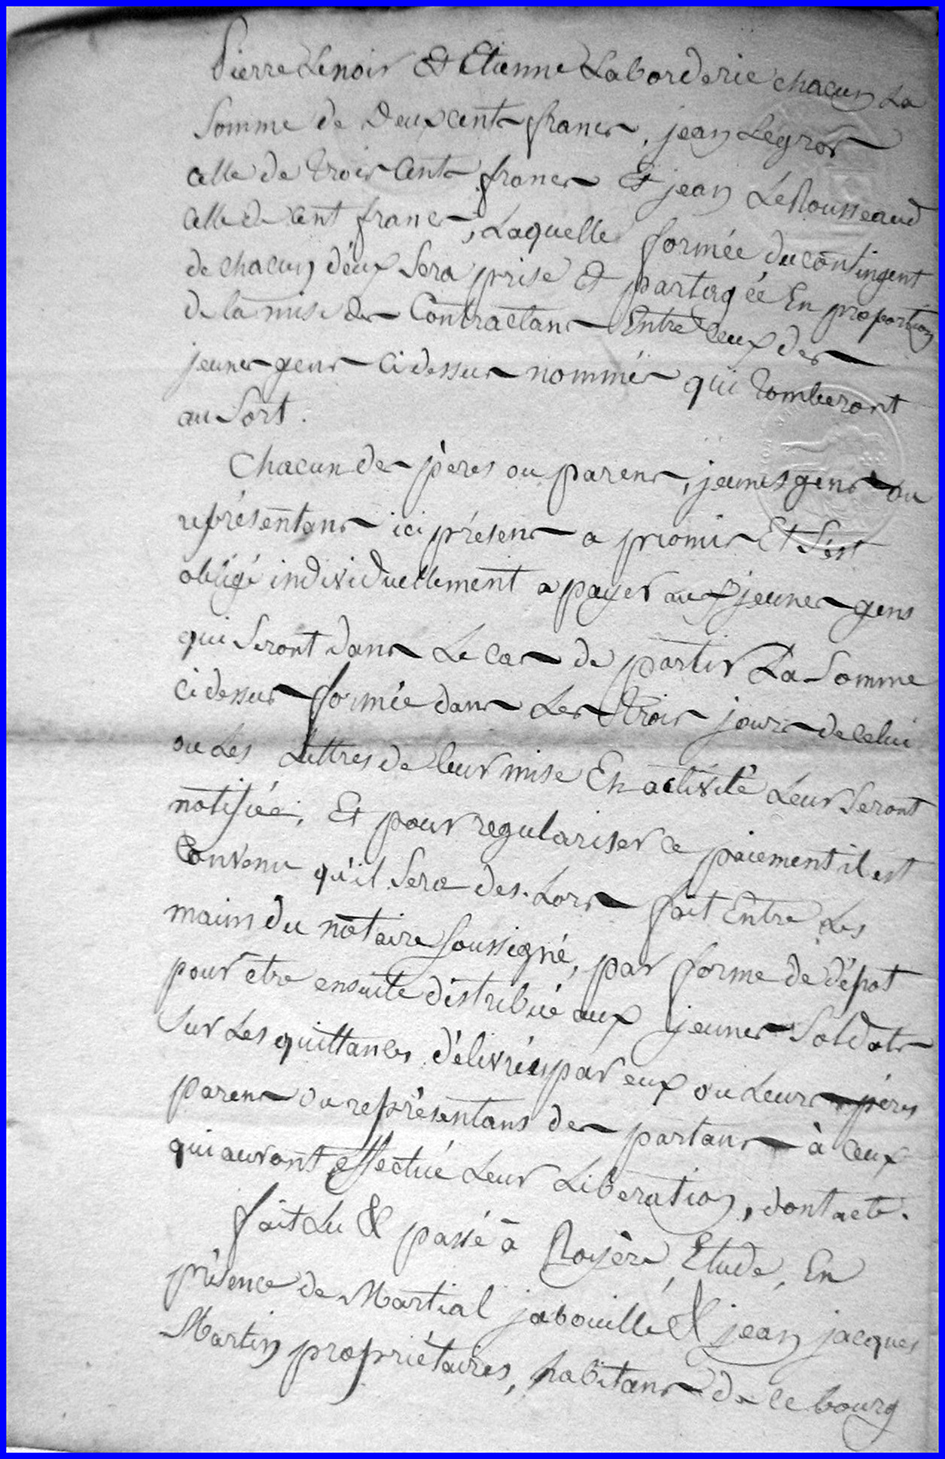 Pierre Lenoir et Etienne Laborderie chacun La
Somme de Deux cents francs, jean Legros
celle de trois cents francs et jean LeRousseaud
celle de cent francs, Laquelle formée du contingent
de chacun d'éux Sera prise et partagée En proportion
de la mise des Contractans Entre ceux des
jeunes gens ci dessus nommés qui tomberont
au Sort.
Chacun des pères ou parens, jeunes gens ou
représentans ici présens a promis Et S'est
obligé individuellement a payer aux jeunes gens
qui Seront dans Le cas de partir La Somme
ci dessus formée dans Les trois jours de celui
ou Les Lettres de leur mise En activité Leur Seront
notifiée, Et pour regulariser ce paiement il est
Convenu qu'il Sera des-Lors fait Entre Les
mains du notaire Soussigné, par forme de dépot
pour etre ensuite distribué aux jeunes Soldats
Sur Les quittances délivrées par eux ou Leurs pères
parens ou représentans des partans à ceux
qui auront effectué Leur Libération, dont acte.
fait Lu & passé à Royère, Etude, En
présence de Martial jabouille & jean jacques
Martin propriétaires, habitans de ce bourg